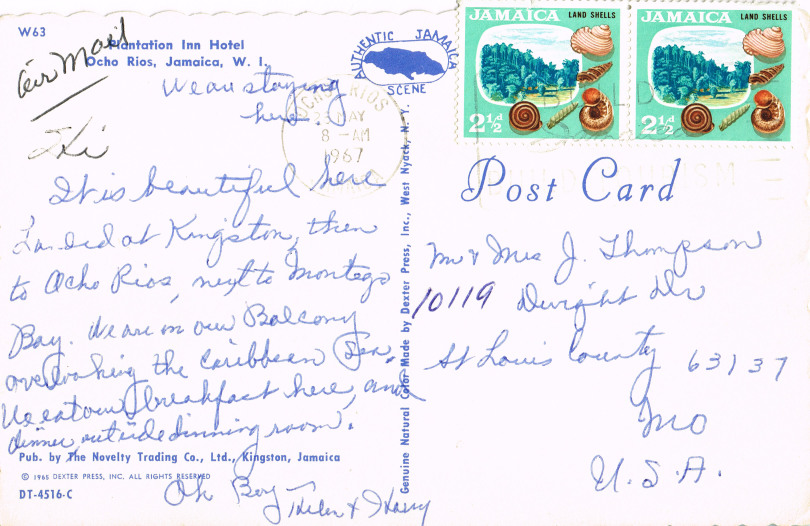 W63
Plantation Inn Hotel
Ocho Rios, Jamaica, W. I.
Air Mail
We are staying
here.
Hi
It is beautiful here
Landed at Kingston, then
to Ocho Rios, next to Montego
Bay. We are on our Balcony
overlooking the Caribbean Sea,
We eat our breakfast here, and
dinner, outside dinning room.
Pub. by The Novelty Trading Co., Ltd., Kingston, Jamaica
© 1965 DEXTER PRESS, INC. ALL RIGHTS RESERVED
DT-4516-C
Oh Boy
Helen & Harry
AUTHENTIC JAMAICA
SCENE
OCHO RIOS
MAY
8 - AM
1967
Genuine Natural Color Made by Dexter Press, Inc., West Nyack, N. Y.
JAMAICA LAND SHELLS
2½d
JAMAICA LAND SHELLS
2½d
Post Card
Mr & Mrs J. Thompson
10119 Dwight Dr
St Louis County 63137
MO
U.S.A.